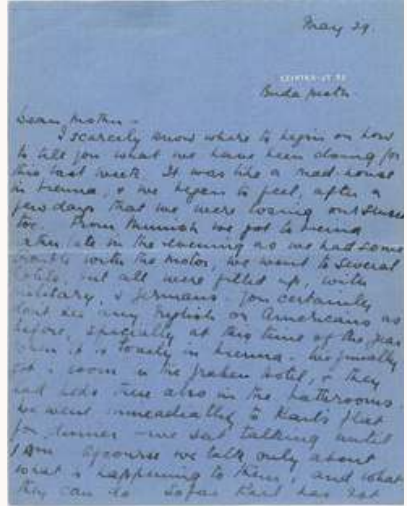 May 29.
Buda
Dear Mother –
I scarcely know where to begin or how
to tell you what we have been doing for
this last week. It was like a mad-house
in Vienna, & we began to feel, after a
few days that we were losing our senses
too. From Munich we got to Vienna
rather late in the evening as we had some
trouble with the motor, we went to several
hotels, but all were filled up, with
military, & Germans. You certainly
dont see any English or Americans as
before, specially at this time of the year
when it is lovely in Vienna. We finally
got a room in the hotel, & they
had beds there also in the bathrooms.
We went immeadiatly to Karl's flat
for dinner – we sat talking until
1 AM. Ofcourse we talk only about
what is happening to them, and what
they can do. Sofar Karl has not